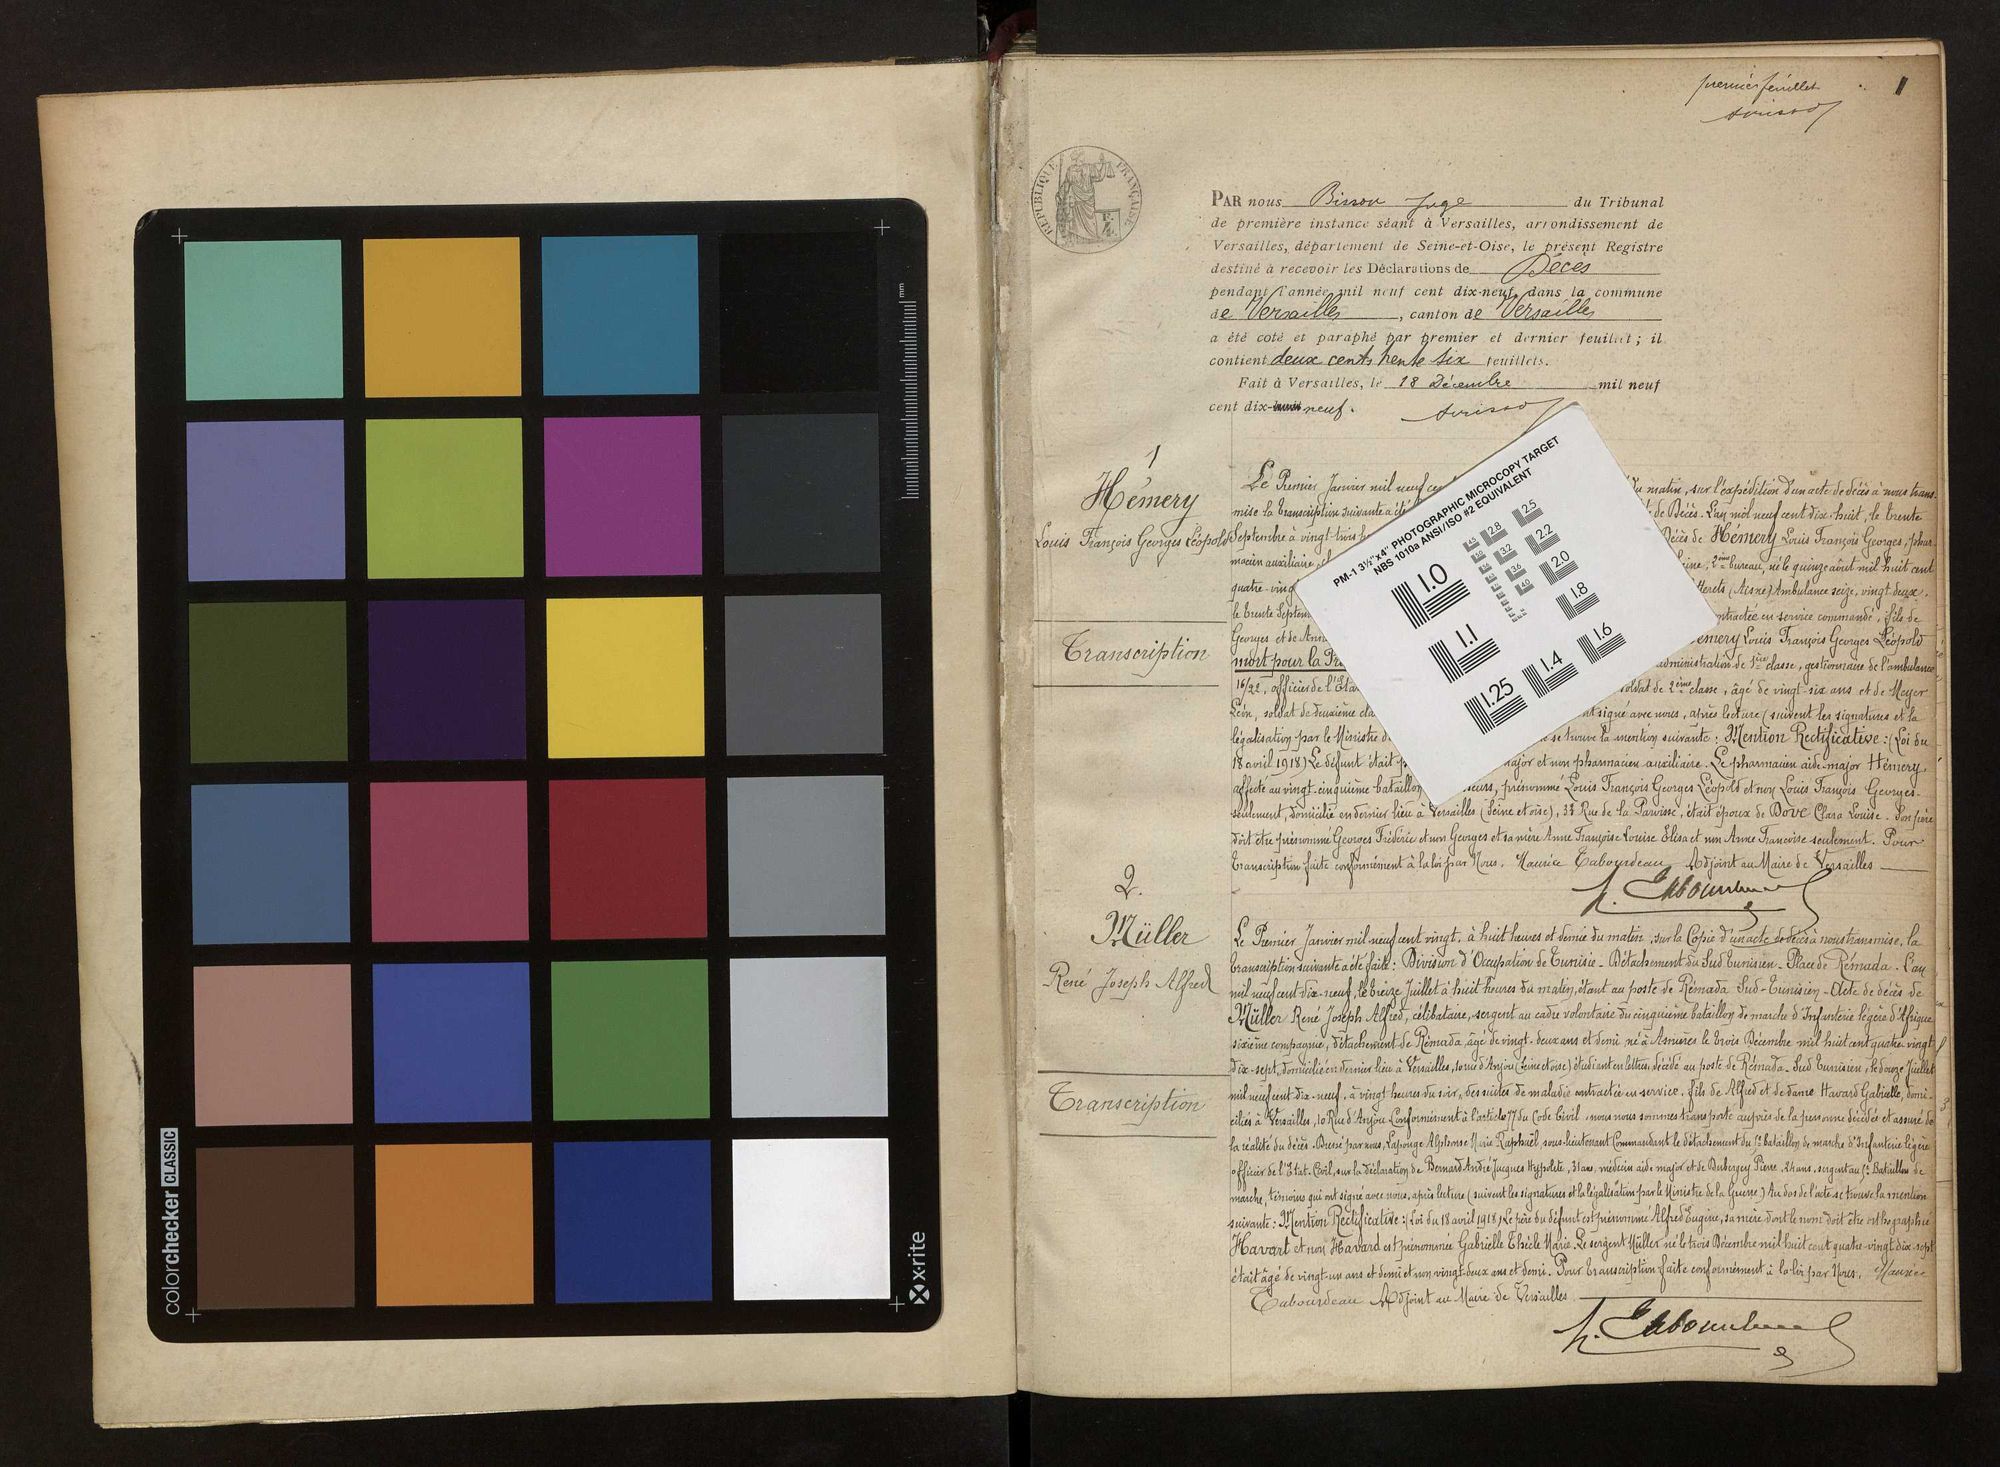 colorchecker CLASSIC
x-rite
mm
premier feuillet
1
RÉPUBLIQUE FRANÇAISE
PAR nous Bisson Juge du Tribunal
de première instance séant à Versailles, arrondissement de
Versailles, département de Seine-et-Oise, le présent Registre
destiné à recevoir les Déclarations de Décès
pendant l'année mil neuf cent dix-neuf dans la commune
de Versailles, canton de Versailles
a été coté et paraphé par premier et dernier feuillet; il
contient deux cents trente six feuillets.
Fait à Versailles, le 18 Décembre mil neuf
cent dix-huit neuf.
PM-1 3½"x4" PHOTOGRAPHIC MICROCOPY TARGET
NBS 1010a ANSI/ISO #2 EQUIVALENT
1.0
1.1
1.25
1.4
1.6
1.8
2.0
2.2
2.5
2.8
3.2
3.6
4.0
4.5
1
Hémery
Louis François Georges Léopold
Transcription
Le Premier Janvier mil neuf cen du matin, sur l'expédition d'un acte de décès à nous trans-
mise la transcription suivante a été te de Décès. L'an mil neuf cent dix-huit, le trente
Septembre à vingt-trois h Décès de Hémery Louis François Georges, phar-
macien auxiliaire, 2ème bureau, né le quinze août mil huit cent
quatre-ving tterets (Aisne) Ambulance seize, vingt deux.
le trente Septem ontractée en service commandé, fils de
Georges et de Ann émery Louis François Georges Léopold
mort pour la Fr administration de 1ère classe, gestionnaire de l'ambulance
16/22, officier de l'Éta oldat de 2ème classe, âgé de vingt-six ans et de Meyer
Léon, soldat de deuxième cla nt signé avec nous, après lecture (suivent les signatures et la
légalisation par le Ministre d se trouve la mention suivante : Mention Rectificative : (Loi du
18 avril 1918) Le défunt était p major et non pharmacien auxiliaire. Le pharmacien aide-major Hémery
affecté au vingt-cinquième bataillon eurs, prénommé Louis François Georges Léopold et non Louis François Georges-
seulement, domicilié en dernier lieu à Versailles (Seine et Oise), 33 Rue de la Paroisse, était époux de DOVE Clara Louise. Son père
doit être prénommé Georges Frédéric et non Georges et sa mère Anne Françoise Louise Elisa et non Anne Francoise seulement. Pour
transcription faite conformément à la loi par Nous, Maurice Tabourdeau, Adjoint au Maire de Versailles
M. Tabourdeau
2.
Müller
René Joseph Alfred
Transcription
Le Premier Janvier mil neuf cent vingt, à huit heures et demie du matin, sur la Copie d'un acte de décès à nous transmise, la
transcription suivante a été faite : Division d'Occupation de Tunisie - Détachement du Sud Tunisien - Place de Rémada. L'an
mil neuf cent dix-neuf, le treize Juillet à huit heures du matin, étant au poste de Rémada Sud-Tunisien - Acte de décès de
Müller René Joseph Alfred, célibataire, sergent au cadre volontaire du cinquième bataillon de marche d'Infanterie légère d'Afrique
sixième compagnie, détachement de Rémada, âgé de vingt-deux ans et demi né à Asnières le trois Décembre mil huit cent quatre-vingt
dix-sept, domicilié en dernier lieu à Versailles, 10 rue d'Anjou (Seine et Oise) étudiant en lettres, décédé au poste de Rémada - Sud Tunisien, le douze Juillet
mil neuf cent dix-neuf, à vingt heures du soir, des suites de maladie contractée en service, fils de Alfred et de dame Havard Gabrielle, domi-
ciliés à Versailles, 10 Rue d'Anjou. Conformément à l'article 77 du Code Civil, nous nous sommes transporté auprès de la personne décédée et assuré de
la réalité du décès. Dressé par nous, Laponge Alphonse Marie Raphaël, sous-lieutenant Commandant le détachement du 5e bataillon de marche d'Infanterie légère
officier de l'État-Civil, sur la déclaration de Bernard André Jacques Hypolite, 31 ans, médecin aide major et de Dubergey Pierre, 24 ans, sergent au 5e Bataillon de
marche, témoins qui ont signé avec nous, après lecture (suivent les signatures et la légalisation par le Ministre de la Guerre) Au dos de l'acte se trouve la mention
suivante : Mention Rectificative : (Loi du 18 avril 1918) Le père du défunt est prénommé Alfred Eugène, sa mère dont le nom doit être orthographié
Havart et non Havard est prénommée Gabrielle Thècle Marie. Le sergent Müller né le trois Décembre mil huit cent quatre-vingt dix-sept
était âgé de vingt-un ans et demi et non vingt-deux ans et demi. Pour transcription faite conformément à la loi par Nous, Maurice
Tabourdeau Adjoint au Maire de Versailles
M. Tabourdeau